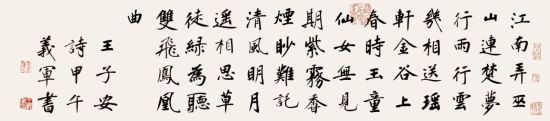 江南弄巫
山連楚夢
行雨行雲
幾相送瑤
軒金谷上
春時玉童
仙女無見
期紫霧香
煙眇難託
清風明月
遙相思草
徒綠為聽
雙飛鳳凰
曲
王子安
詩甲午
義軍書